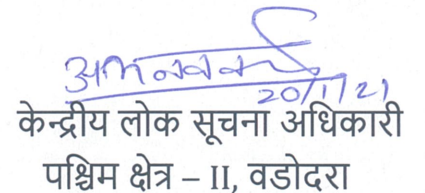 20/1/21
केन्द्रीय लोक सूचना अधिकारी
पश्चिम क्षेत्र – II, वडोदरा